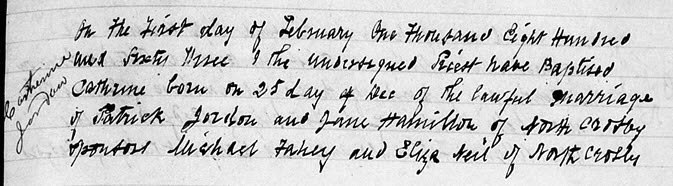 On the First day of February One Thousand Eight Hundred
and Sixty Three I the undersigned Priest have Baptised
Cathrine born on 25 day of Dec of the lawful Marriage
of Patrick Jordon and Jane Hamilton of North Crosby
Sponsors Michael Fahey and Eliza Neil of North Crosby
Catherine
Jordan